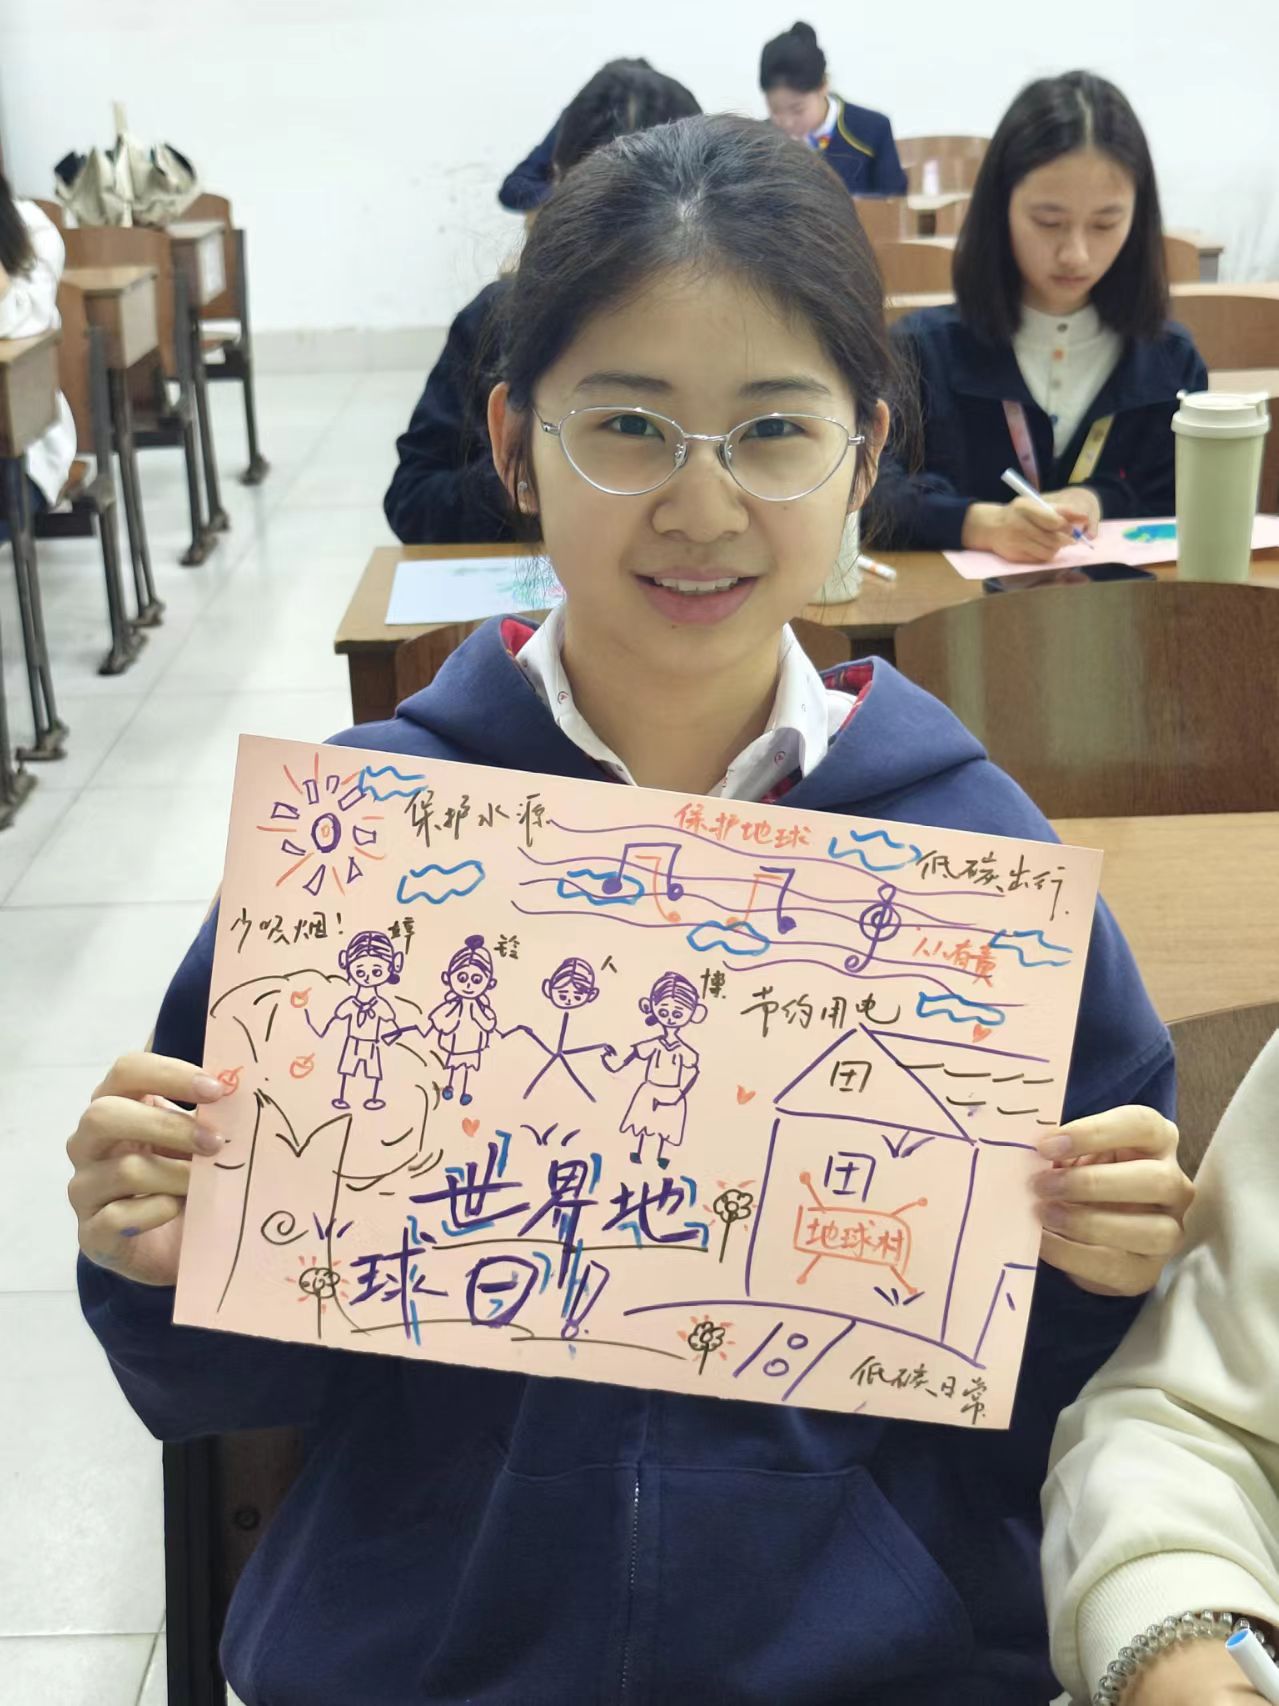 保护水源
保护地球
低碳出行
少吸烟！
婷
铃
人
博
人人有责
节约用电
世界地
球日！
地球村
低碳日常